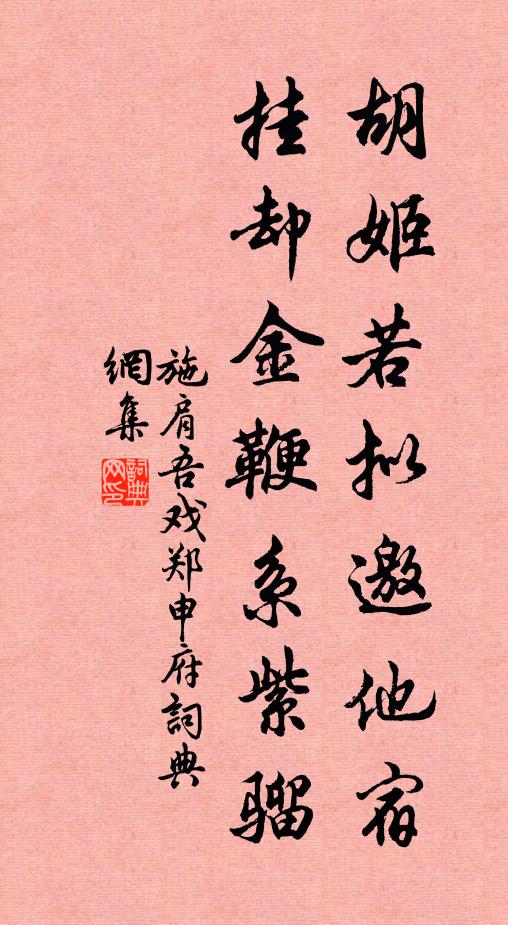 胡姬若拟邀他宿
挂却金鞭系紫骝
施肩吾戏郑申府詞典
網集
詞典网印